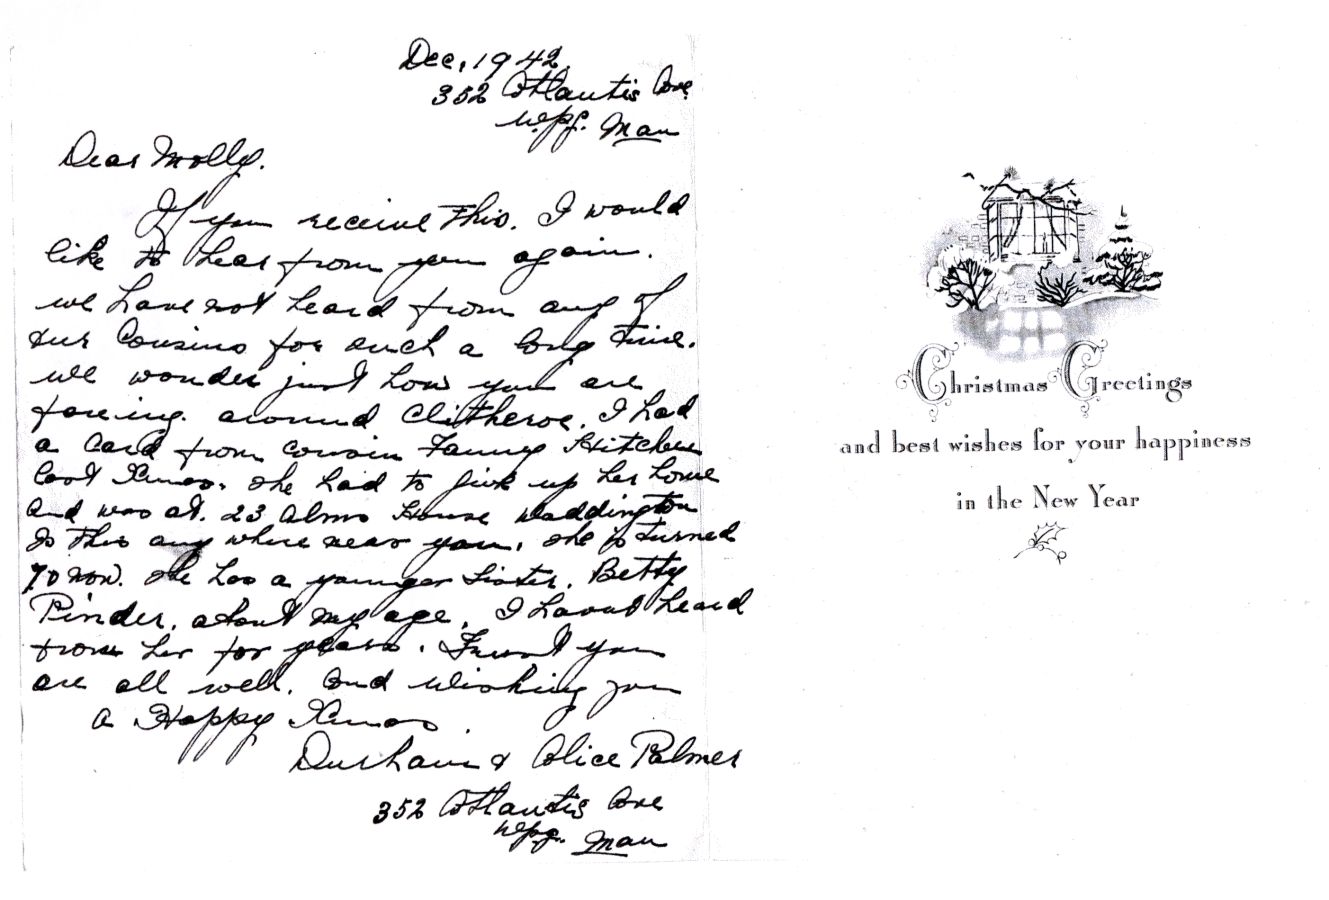 Dec, 1942.
352 Atlantis Ave
Wpg. Man
Dear Molly.
If you receive This. I would
like to hear from you again.
we have not heard from any of
our Cousins for such a long Time.
we wonder just how you are
fareing. around Clitheroe. I had
a Card from Cousin Fanny Hitchen
last Xmas. she had to give up her home
and was at. 23 alms House Waddington
Is This any where near you. she is turned
70 now. she has a younger sister. Betty
Pinder. about my age. I havnt heard
from her for years. Trust you
are all well. and wishing you
a Happy Xmas.
Durham & Alice Palmer
352 Atlantis Ave
Wpg. Man
Christmas Greetings
and best wishes for your happiness
in the New Year